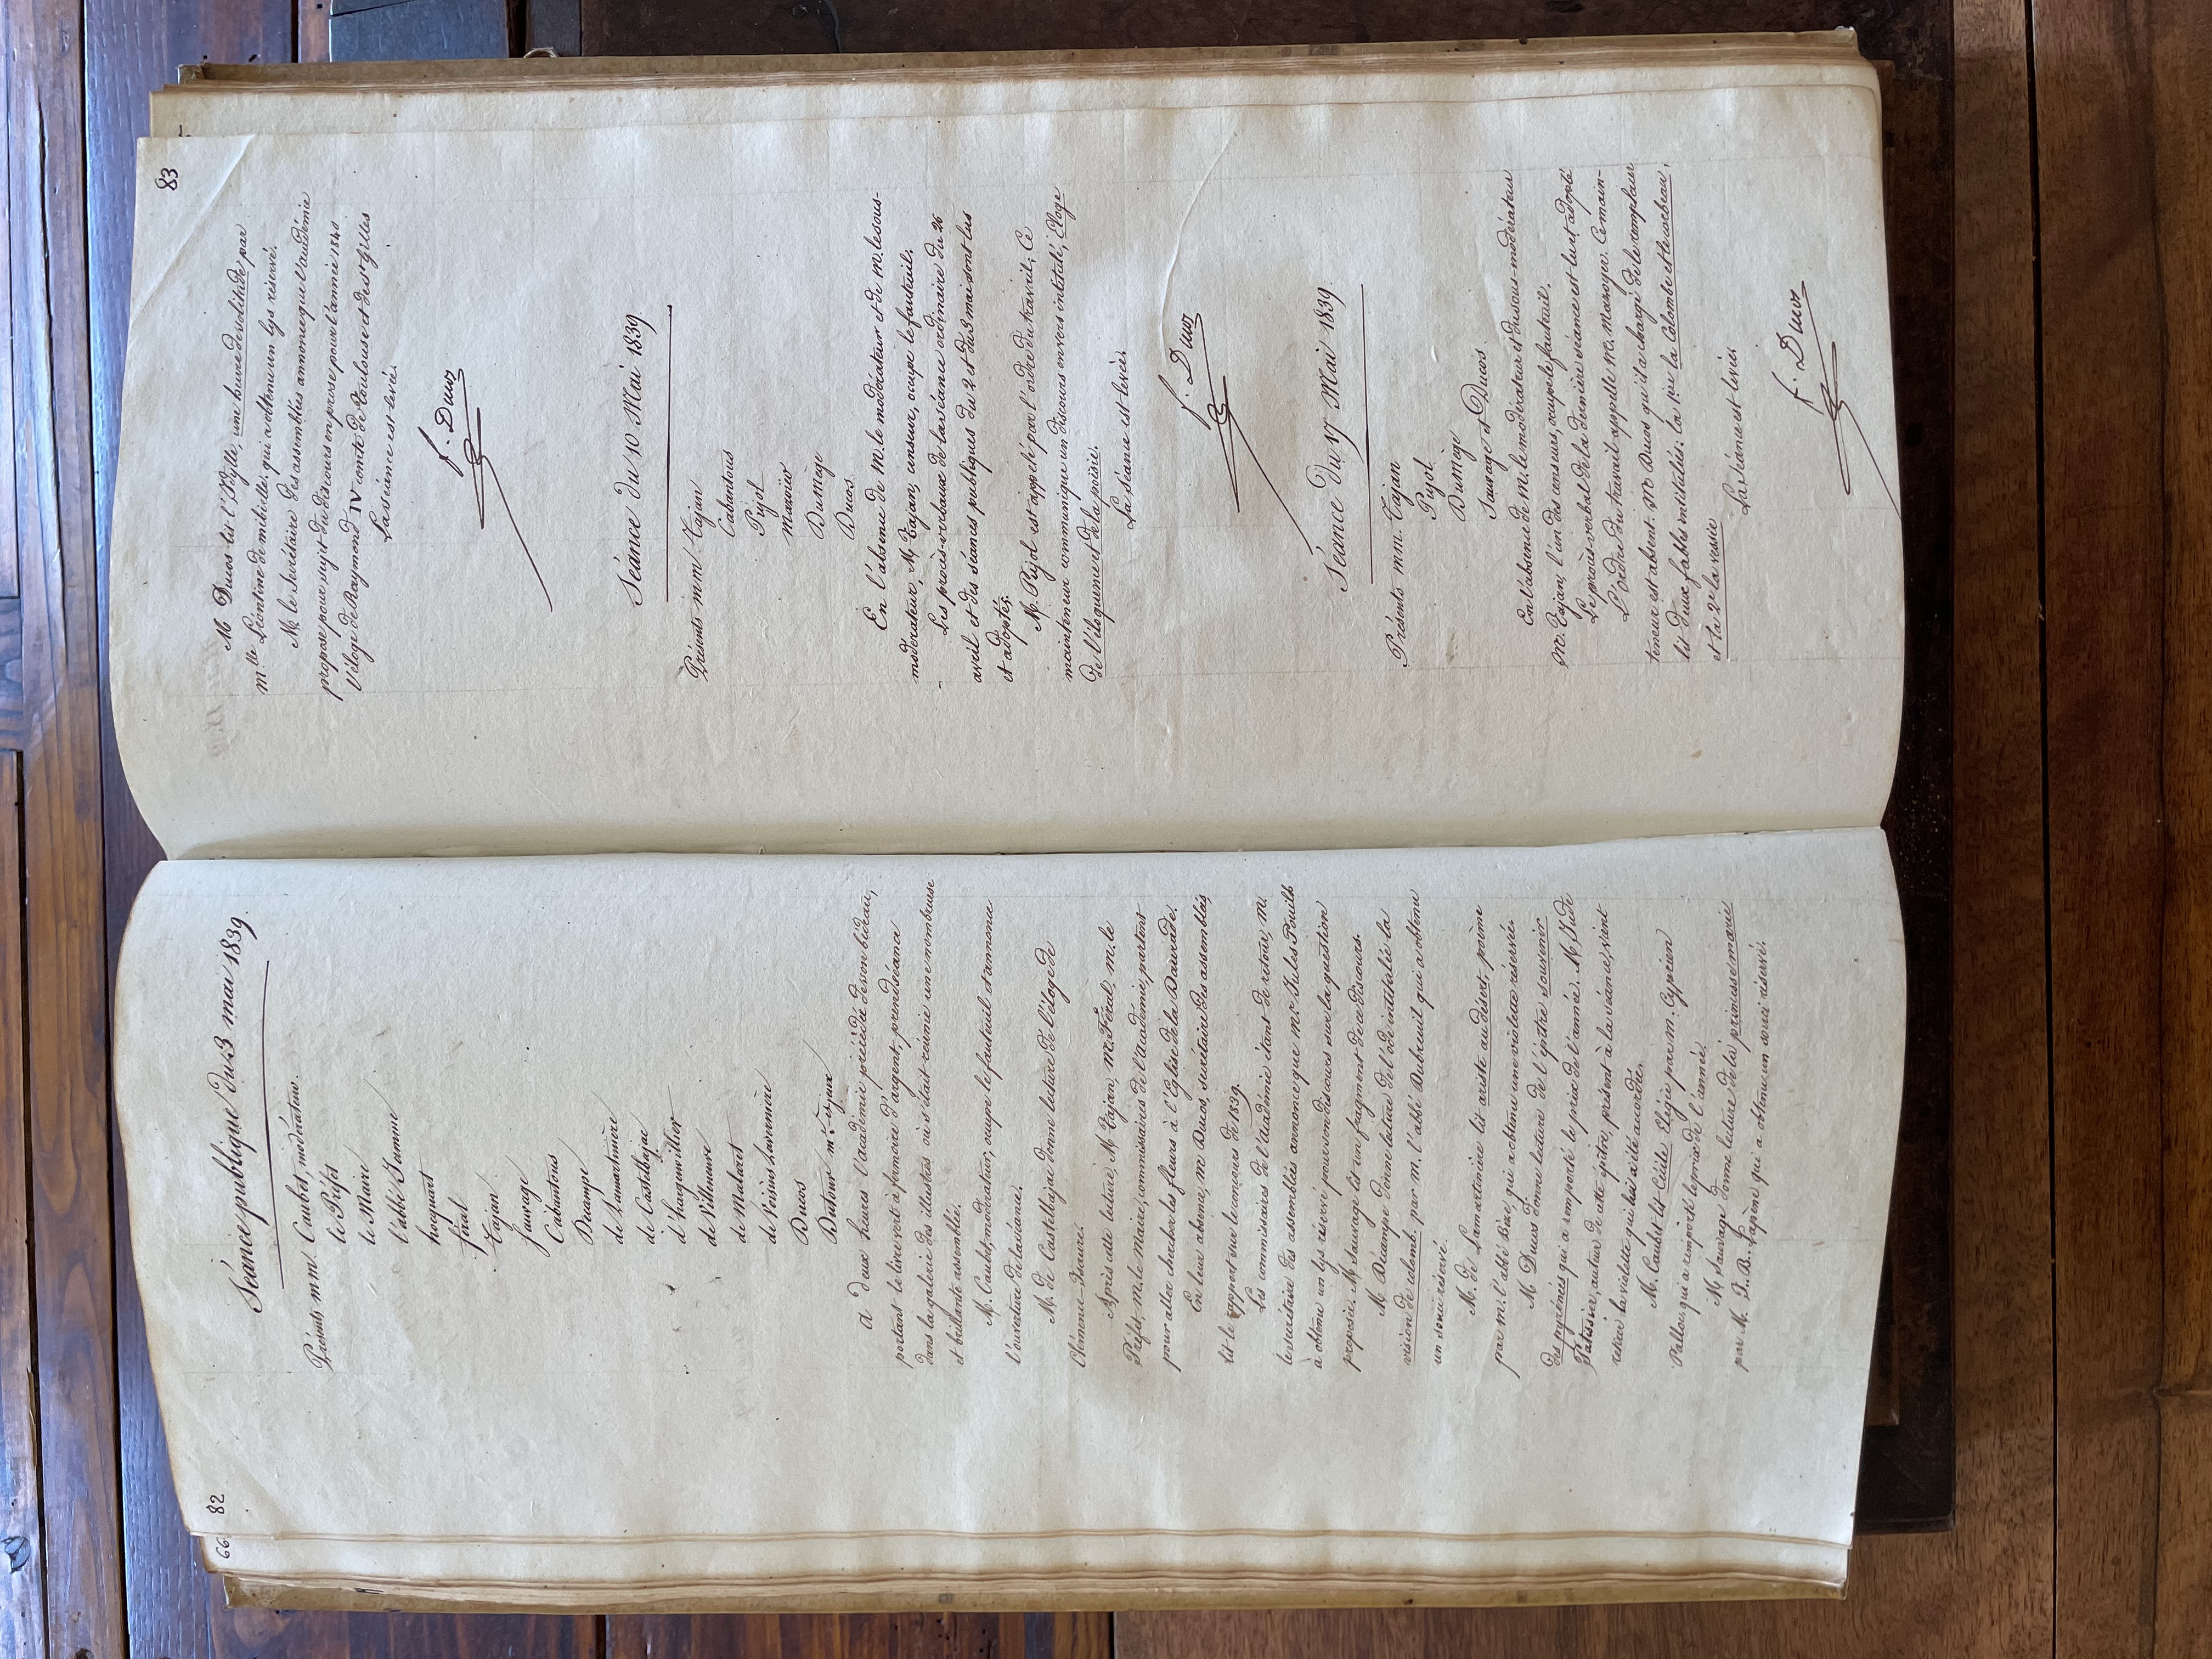 66
82
Séance publique du 3 mai 1839.
Présents mm. Caubet, modérateur.
le Préfet
le Maire
l'abbé Jamme
hocquart
féral
Tajan
Sauvage
Cabantous
Décampe
de Lamartinière
de Castelbajac
d'hargenvillier
de Villeneuve
de Malaret
de Voisins Lavernière
Ducos
Dutour mtre ès jeux
A deux heures l'académie précédée de son bureau,
portant le livre vert à fermoire d'argent, prend séance
dans la galerie des illustres où s'était réunie une nombreuse
et brillante assemblée.
M. Caubet, modérateur, occupe le fauteuil et annonce
l'ouverture de la séance.
M. de Castelbajac donne lecture de l'éloge de
Clémence-Isaure.
Après cette lecture, M. Tajan, M. Féral, m. le
Préfet, m. le Maire, commissaires de l'académie, partent
pour aller chercher les fleurs à l'Eglise de la Daurade.
En leur absence, M Ducos, secrétaire des assemblées
lit le rapport sur le concours de 1839.
Les commissaires de l'académie étant de retour, m.
le secrétaire des assemblées annonce que mr. Jules Pouilh
à obtenu un lys réservé pour son discours sur la question
proposée. M Sauvage lit un fragment de ce discours.
M Décampe donne lecture de l'ode intitulée la
vision de colomb, par m. l'abbé Dubreuil qui a obtenu
un souci réservé.
M. de Lamartinière lit ariste au désert, poème
par m. l'abbé Bize, qui a obtenu une violette réservée.
M Ducos donne lecture de l'épitre Souvenir
des pyrénées qui a remporté le prix de l'année. M. Jude
Patissier, auteur de cette épitre, présent à la séance, vient
retirer la violette qui lui a été accordée.
M. Caubet lit Cécile Elégie par m. Cyprien
Pallou qui a remporté le prix de l'année.
M. Sauvage donne lecture de la princesse marie
par M. J. B. Lapène qui a obtenu un souci réservé.
83
M Ducos lit l'Idylle, une heure de solitude par
Mlle Léontine de mibielle. qui a obtenu un lys réservé.
M. le Secrétaire des assemblées annonce que l'académie
propose pour sujet du discours en prose pour l'année 1840
l'éloge de Raymond IV comte de Toulouse et de St Gilles
La séance est levée.
f. Ducos
Séance du 10 Mai 1839
Présents m m. Tajan
Cabantous
Pujol
Mazoïer
Dumège
Ducos.
En l'absence de M. le modérateur et de M. le sous-
modérateur, M. Tajan, censeur, occupe le fauteuil.
- Les procès-verbaux de la séance ordinaire du 26
avril et des séances publiques du 2 et du 3 mai sont lus
et adoptés.
M. Pujol est appelé par l'ordre du travail; Ce
mainteneur communique un discours en vers intitulé, Eloge
de l'éloquence et de la poësie.
La séance est levée.
f. Ducos
Séance du 17 Mai 1839.
Présents mm. Tajan
Pujol
Dumège
Sauvage et Ducos.
En l'absence de M. le modérateur et du sous-modérateur
M. Tajan, l'un des censeurs, occupe le fauteuil.
Le procès-verbal de la dernière séance est lu et adopté
L'Ordre du travail appelle M. Mazoyer. Ce main-
teneur est absent. M Ducos qu'il a chargé de le remplacer
lit deux fables intitulées: la 1ere la Colombe et le corbeau,
et la 2e la vessie
La Séance est levée
f. Ducos